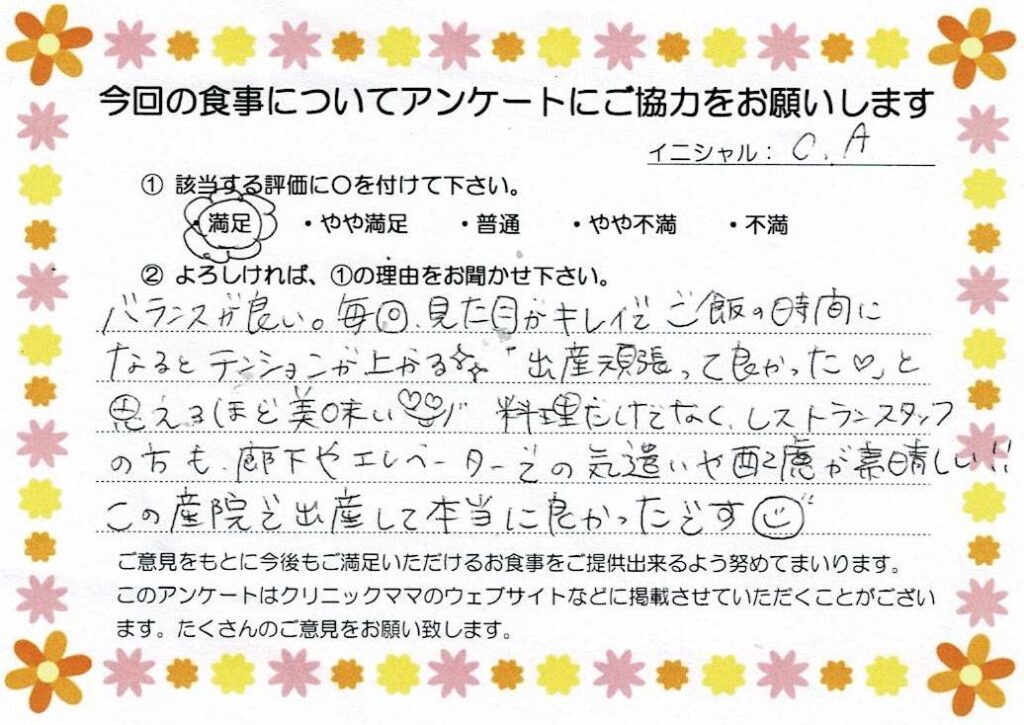 今回の食事についてアンケートにご協力をお願いします
イニシャル： C.A
① 該当する評価に○を付けて下さい。
・満足 ・やや満足 ・普通 ・やや不満 ・不満
② よろしければ、①の理由をお聞かせ下さい。
バランスが良い。毎回、見た目がキレイでご飯の時間に
なるとテンションが上がる☆「出産頑張って良かった♡」と
思えるほど美味い!! 料理だけでなく、レストランスタッフ
の方も、廊下やエレベーターでの気遣いや配慮が素晴しい!!
この産院で出産して本当に良かったです☺
ご意見をもとに今後もご満足いただけるお食事をご提供出来るよう努めてまいります。
このアンケートはクリニックママのウェブサイトなどに掲載させていただくことがござい
ます。たくさんのご意見をお願い致します。